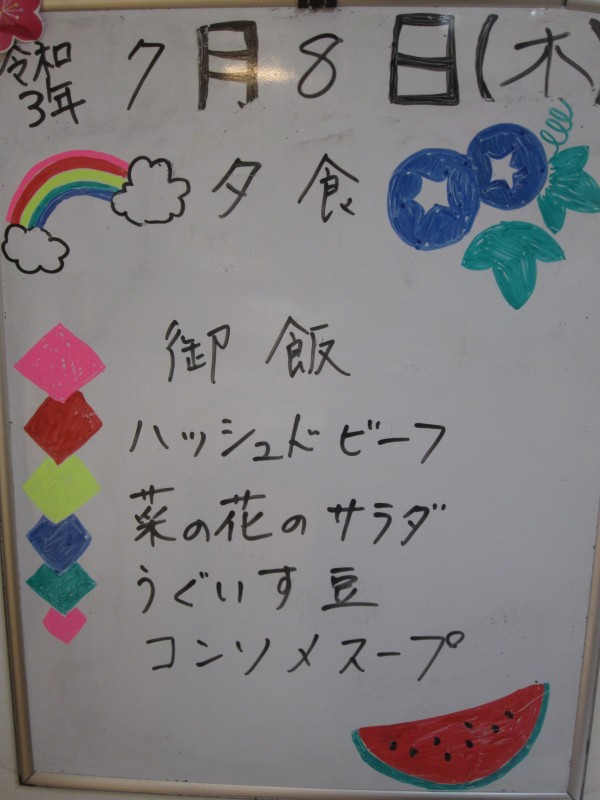 令和3年 7月8日(木)
夕食
御飯
ハッシュドビーフ
菜の花のサラダ
うぐいす豆
コンソメスープ